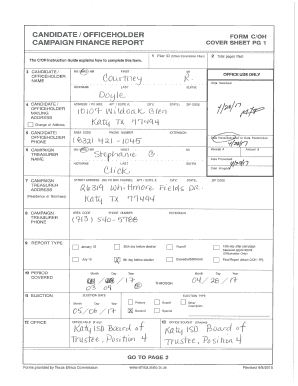 CANDIDATE / OFFICEHOLDER
CAMPAIGN FINANCE REPORT
FORM C/OH
COVER SHEET PG 1
The C/OH Instruction Guide explains how to complete this form.
1 Filer ID (Ethics Commission Filers)
2 Total pages filed:
3 CANDIDATE / OFFICEHOLDER NAME
FIRST
MI
Courtney
R.
NICKNAME LAST SUFFIX
Doyle
OFFICE USE ONLY
Date Received
4/28/17
4 CANDIDATE / OFFICEHOLDER MAILING ADDRESS
Change of Address
ADDRESS / PO BOX; APT / SUITE #; CITY; STATE; ZIP CODE
Glen
Katy TX 77494
5 CANDIDATE / OFFICEHOLDER PHONE
AREA CODE PHONE NUMBER EXTENSION
(832) 421-1045
6 CAMPAIGN TREASURER NAME
FIRST MI
Stephanie
NICKNAME LAST SUFFIX
Click
Receipt # Amount $
Date Processed
Date Imaged
7 CAMPAIGN TREASURER ADDRESS
(Residence or Business)
STREET ADDRESS (NO PO BOX PLEASE); APT / SUITE #; CITY; STATE; ZIP CODE
26319 Whitmore Fields Dr.
Katy TX 77494
8 CAMPAIGN TREASURER PHONE
AREA CODE PHONE NUMBER EXTENSION
(713) 540-5788
9 REPORT TYPE
January 15
30th day before election
Runoff
July 15
8th day before election
10 PERIOD COVERED
Month Day Year
THROUGH
Month Day Year
04 / 28 / 17
11 ELECTION
ELECTION DATE
Month Day Year
05 / 06 / 17
ELECTION TYPE
Primary
Runoff
General
Special
12 OFFICE
OFFICE HELD (if any)
Katy ISD Board of
Trustee, Position 4
13 OFFICE SOUGHT (if known)
Katy ISD Board of
Trustee, Position 4
GO TO PAGE 2
Forms provided by Texas Ethics Commission
www.ethics.state.tx.us
Revised 9/8/2015